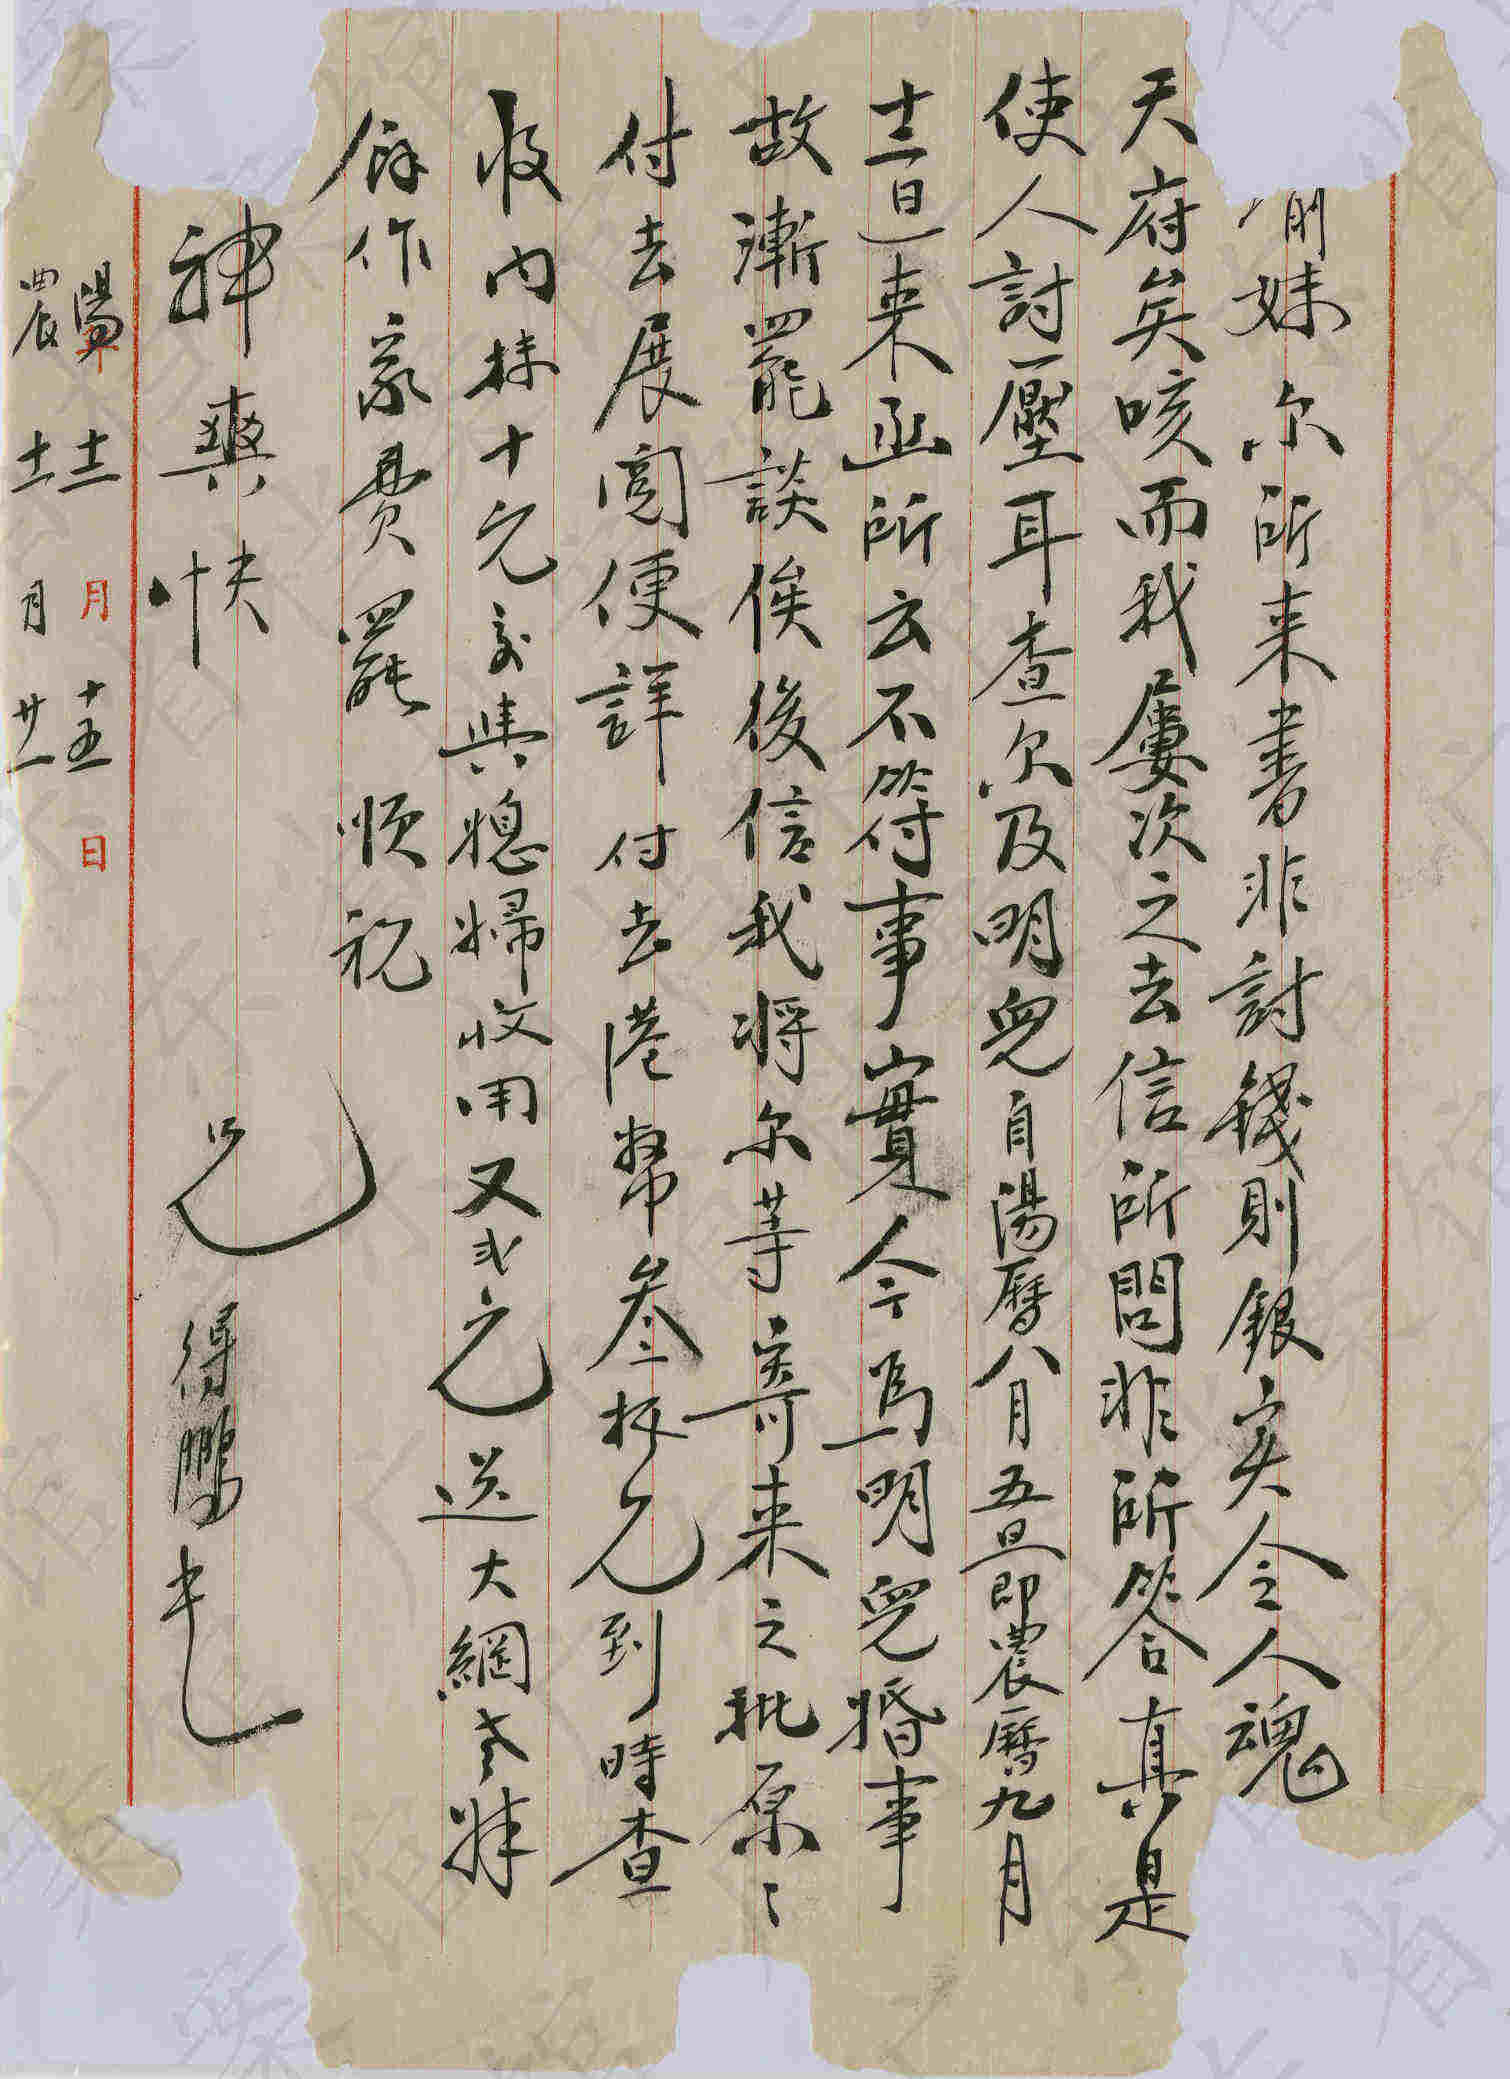 妹尔所来書非討錢則銀实令人魂
天府矣咳而我屢次之去信所問非所答真是
使人討壓耳查尔及明兒自陽曆八月五日即農曆九月
十二日来函所云不符事實今為明兒婚事
故漸罷談俟後信我将尔等寄来之批原〻
付去展閲便詳付去港幣叁拾元到時查
收内抹十元交與媳婦收用又弍元送大綱老妹
餘作家費罷順祝
神爽快
兄得鵬屮
陽年十二月十五日
農十一月廿一